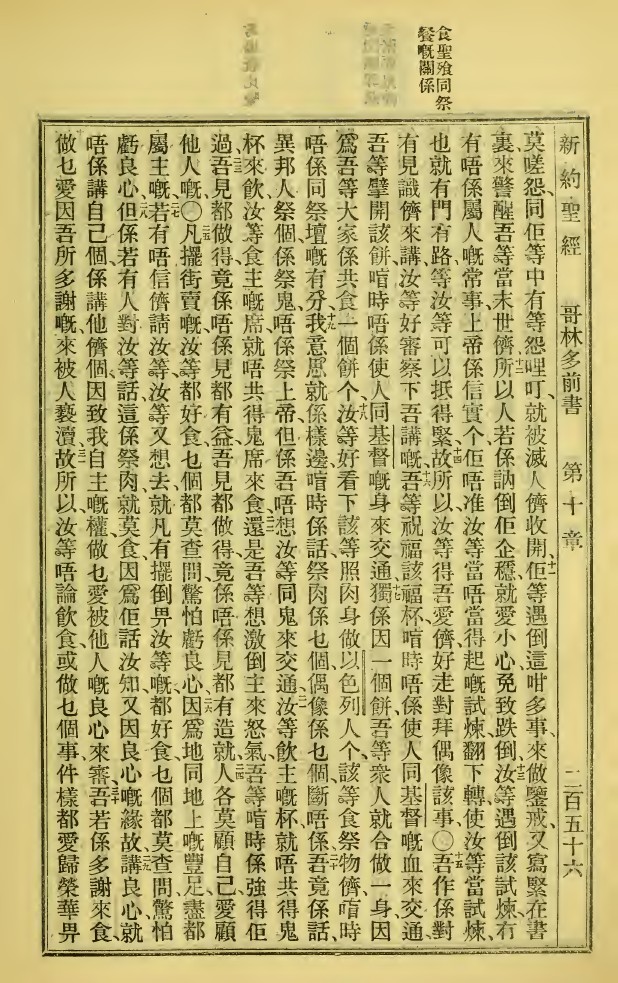 食聖飱同祭
餐嘅關係
新約聖經 哥林多前書 第十章 二百五十六
莫嗟怨、同佢等中有等怨哩叮、就被滅人儕收開、佢等遇倒這咁多事、來做鑒戒、又寫緊在書
裏來警醒吾等當末世儕、所以人若係訥倒佢企穩、就愛小心免致跌倒、汝等遇倒該試煉、冇
有唔係屬人嘅常事、上帝係信實个、佢唔准汝等當唔當得起嘅試煉、翻下轉、使汝等當試煉、
也就有門有路、等汝等可以抵得緊、故所以汝等得吾愛儕、好走對拜偶像該事、〇吾作係對
有見識儕來講、汝等好審察下吾講嘅、吾等祝福該福杯㗒時、唔係使人同基督嘅血來交通、
吾等擘開該餅㗒時、唔係使人同基督嘅身來交通、獨係因一個餅、吾等衆人就合做一身、因
爲吾等大家係共食一個餅个、汝等好看下該等照肉身做以色列人个、該等食祭物儕、㗒時
唔係同祭壇嘅有分、我意思就係樣邊㗒時、係話祭肉係乜個、偶像係乜個、斷唔係、吾竟係話、
異邦人祭個、係祭鬼、唔係祭上帝、但係吾唔想汝等同鬼來交通、汝等飲主嘅杯、就唔共得鬼
杯來飲、汝等食主嘅席、就唔共得鬼席來食、還是吾等想激倒主來怒氣、吾等㗒時係強得佢
過、吾見都做得、竟係唔係見都有益、吾見都做得、竟係唔係見都有造就、人各莫顧自己、愛顧
他人嘅、〇凡擺街賣嘅、汝等都好食、乜個都莫查問、驚怕虧良心、因爲地同地上嘅豐足、盡都
屬主嘅、若有唔信儕請汝等、汝等又想去、就凡有擺倒畀汝等嘅、都好食、乜個都莫查問、驚怕
虧良心、但係若有人對汝等話、這係祭肉、就莫食、因爲佢話汝知、又因良心嘅緣故、講良心、就
唔係講自己個、係講他儕個、因致我自主嘅權、做乜愛被他人嘅良心來審、吾若係多謝來食、
做乜愛因吾所多謝嘅、來被人褻瀆、故所以汝等唔論飲食、或做乜個事件、樣都愛歸榮華畀